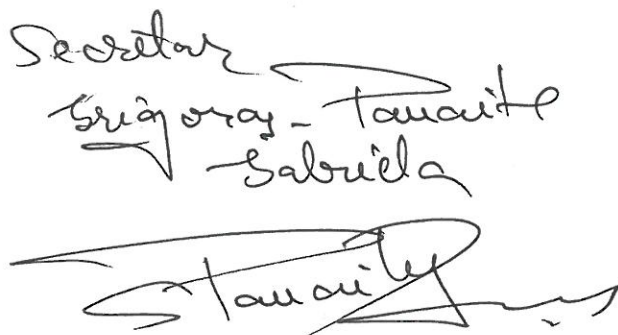 Secretar
Grigoraș - Panaite
Gabriela
Panaite